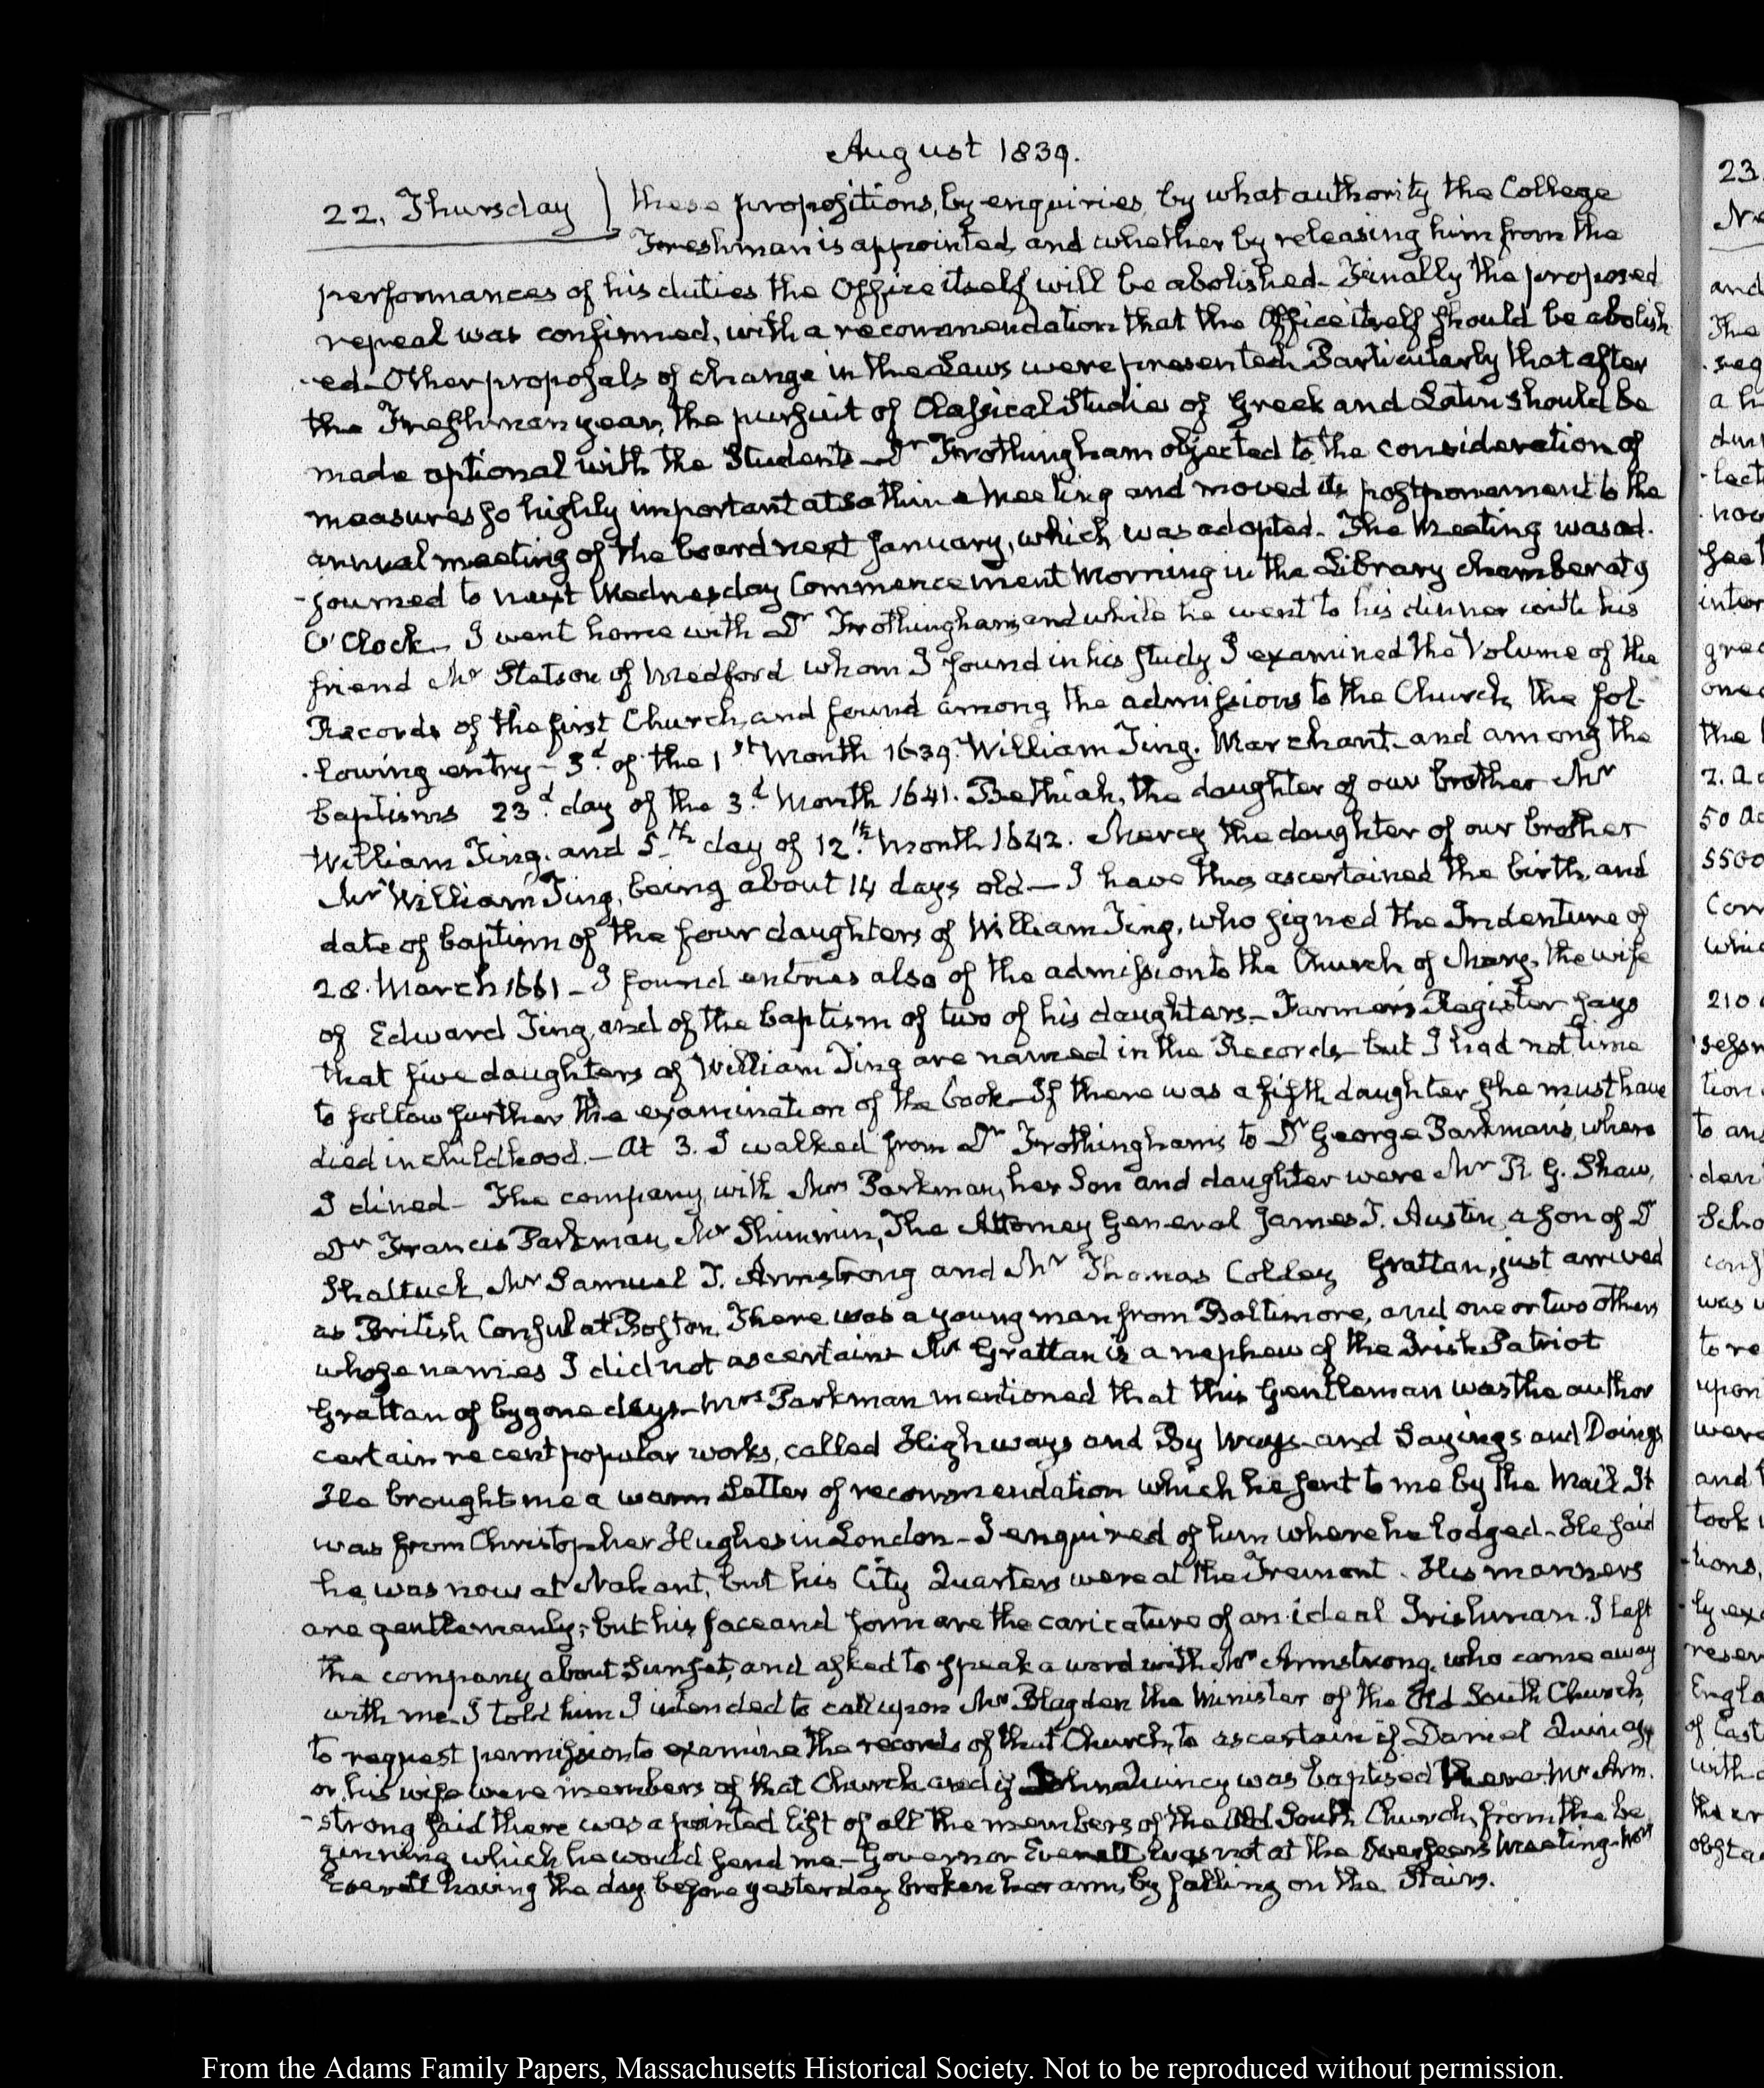 August 1839.
22. Thursday } these propositions, by enquiries, by what authority the College
Freshman is appointed, and whether by releasing him from the
performances of his duties the Office itself will be abolished. Finally the proposed
repeal was confirmed, with a recommendation that the Office itself should be abolish
-ed. Other proposals of change in the Laws were presented. Particularly that after
the Freshman year, the pursuit of Classical Studies of Greek and Latin should be
made optional with the Students. Dr Frothingham objected to the consideration of
measures so highly important at so thin a Meeting and moved its postponement to the
annual meeting of the board next January, which was adopted. The Meeting was ad-
-journed to next Wednesday Commencement Morning in the Library chamber at 9
O'Clock. I went home with Dr Frothingham, and while he went to his dinner with his
friend Mr Stetson of Medford whom I found in his study I examined the Volume of the
Records of the first Church, and found among the admissions to the Church, the fol-
-lowing entry – 3d of the 1st Month 1639. William Ting. Marchant. and among the
baptisms 23d day of the 3d Month 1641. Bethiah, the daughter of our brother Mr
William Ting. and 5th day of 12th Month 1642. Mercy the daughter of our brother
Mr William Ting, being about 14 days old – I have thus ascertained the birth, and
date of baptism of the four daughters of William Ting, who signed the Indenture of
28. March 1661 – I found entries also of the admission to the Church of Mary, the wife
of Edward Ting, and of the baptism of two of his daughters – Farmer's Register says
that five daughters of William Ting are named in the Records – but I had not time
to follow further the examination of the book – If there was a fifth daughter she must have
died in childhood. – At 3. I walked from Dr Frothingham's to Dr George Parkman's, where
I dined – The company, with Mrs Parkman, her Son and daughter were Mr R. G. Shaw,
Dr Francis Parkman, Mr Shimmin, The Attorney General James T. Austin, a son of Dr
Shattuck, Mr Samuel T. Armstrong and Mr Thomas Colley Grattan, just arrived
as British Consul at Boston. There was a young man from Baltimore, and one or two others
whose names I did not ascertain. Mr Grattan is a nephew of the Irish Patriot
Grattan of bygone days – Mrs Parkman mentioned that this Gentleman was the author
certain recent popular works, called Highways and By Ways – and Sayings and Doings
He brought me a warm Letter of recommendation which he sent to me by the Mail. It
was from Christopher Hughes in London – I enquired of him where he lodged. He said
he was now at Nahant, but his City Quarters were at the Tremont. His manners
are gentlemanly; but his face and form are the caricature of an ideal Irishman. I left
the company about Sunset, and asked to speak a word with Mr Armstrong, who came away
with me. I told him I intended to call upon Mr Blagden the Minister of the Old South Church,
to request permission to examine the records of that Church, to ascertain if Daniel Quincy
or his wife were members of that Church and if John Quincy was baptised there. Mr Arm-
-strong said there was a printed list of all the members of the Old South Church, from the be
ginning which he would send me – Governor Everett was not at the Overseers Meeting – Mrs
Everett having the day before yesterday broken her arm, by falling on the Stairs.
23.
and
The
a h
the
50 ac
5500
210
to an
was
to re
upon
were
took
From the Adams Family Papers, Massachusetts Historical Society. Not to be reproduced without permission.